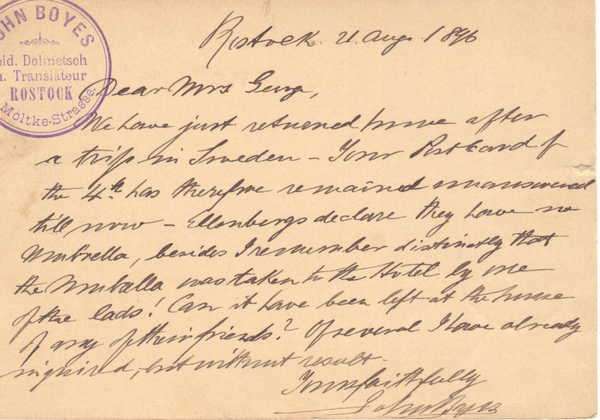 JOHN BOYES
eid. Dolmetsch
u. Translateur
ROSTOCK
Moltke-Strasse.
Rostock. 21. Augt 1896
Dear Mrs George,
We have just returned home after
a trip in Sweden – Your Postcard of
the 4th has therefore remained unanswered
till now – Ellenbergs declare they have no
Umbrella, besides I remember distinctly that
the Umbrella was taken to the Hotel by one
of the lads! Can it have been left at the house
of any of their friends? Of several I have already
inquired, but without result.
Yours faithfully
John Boyes